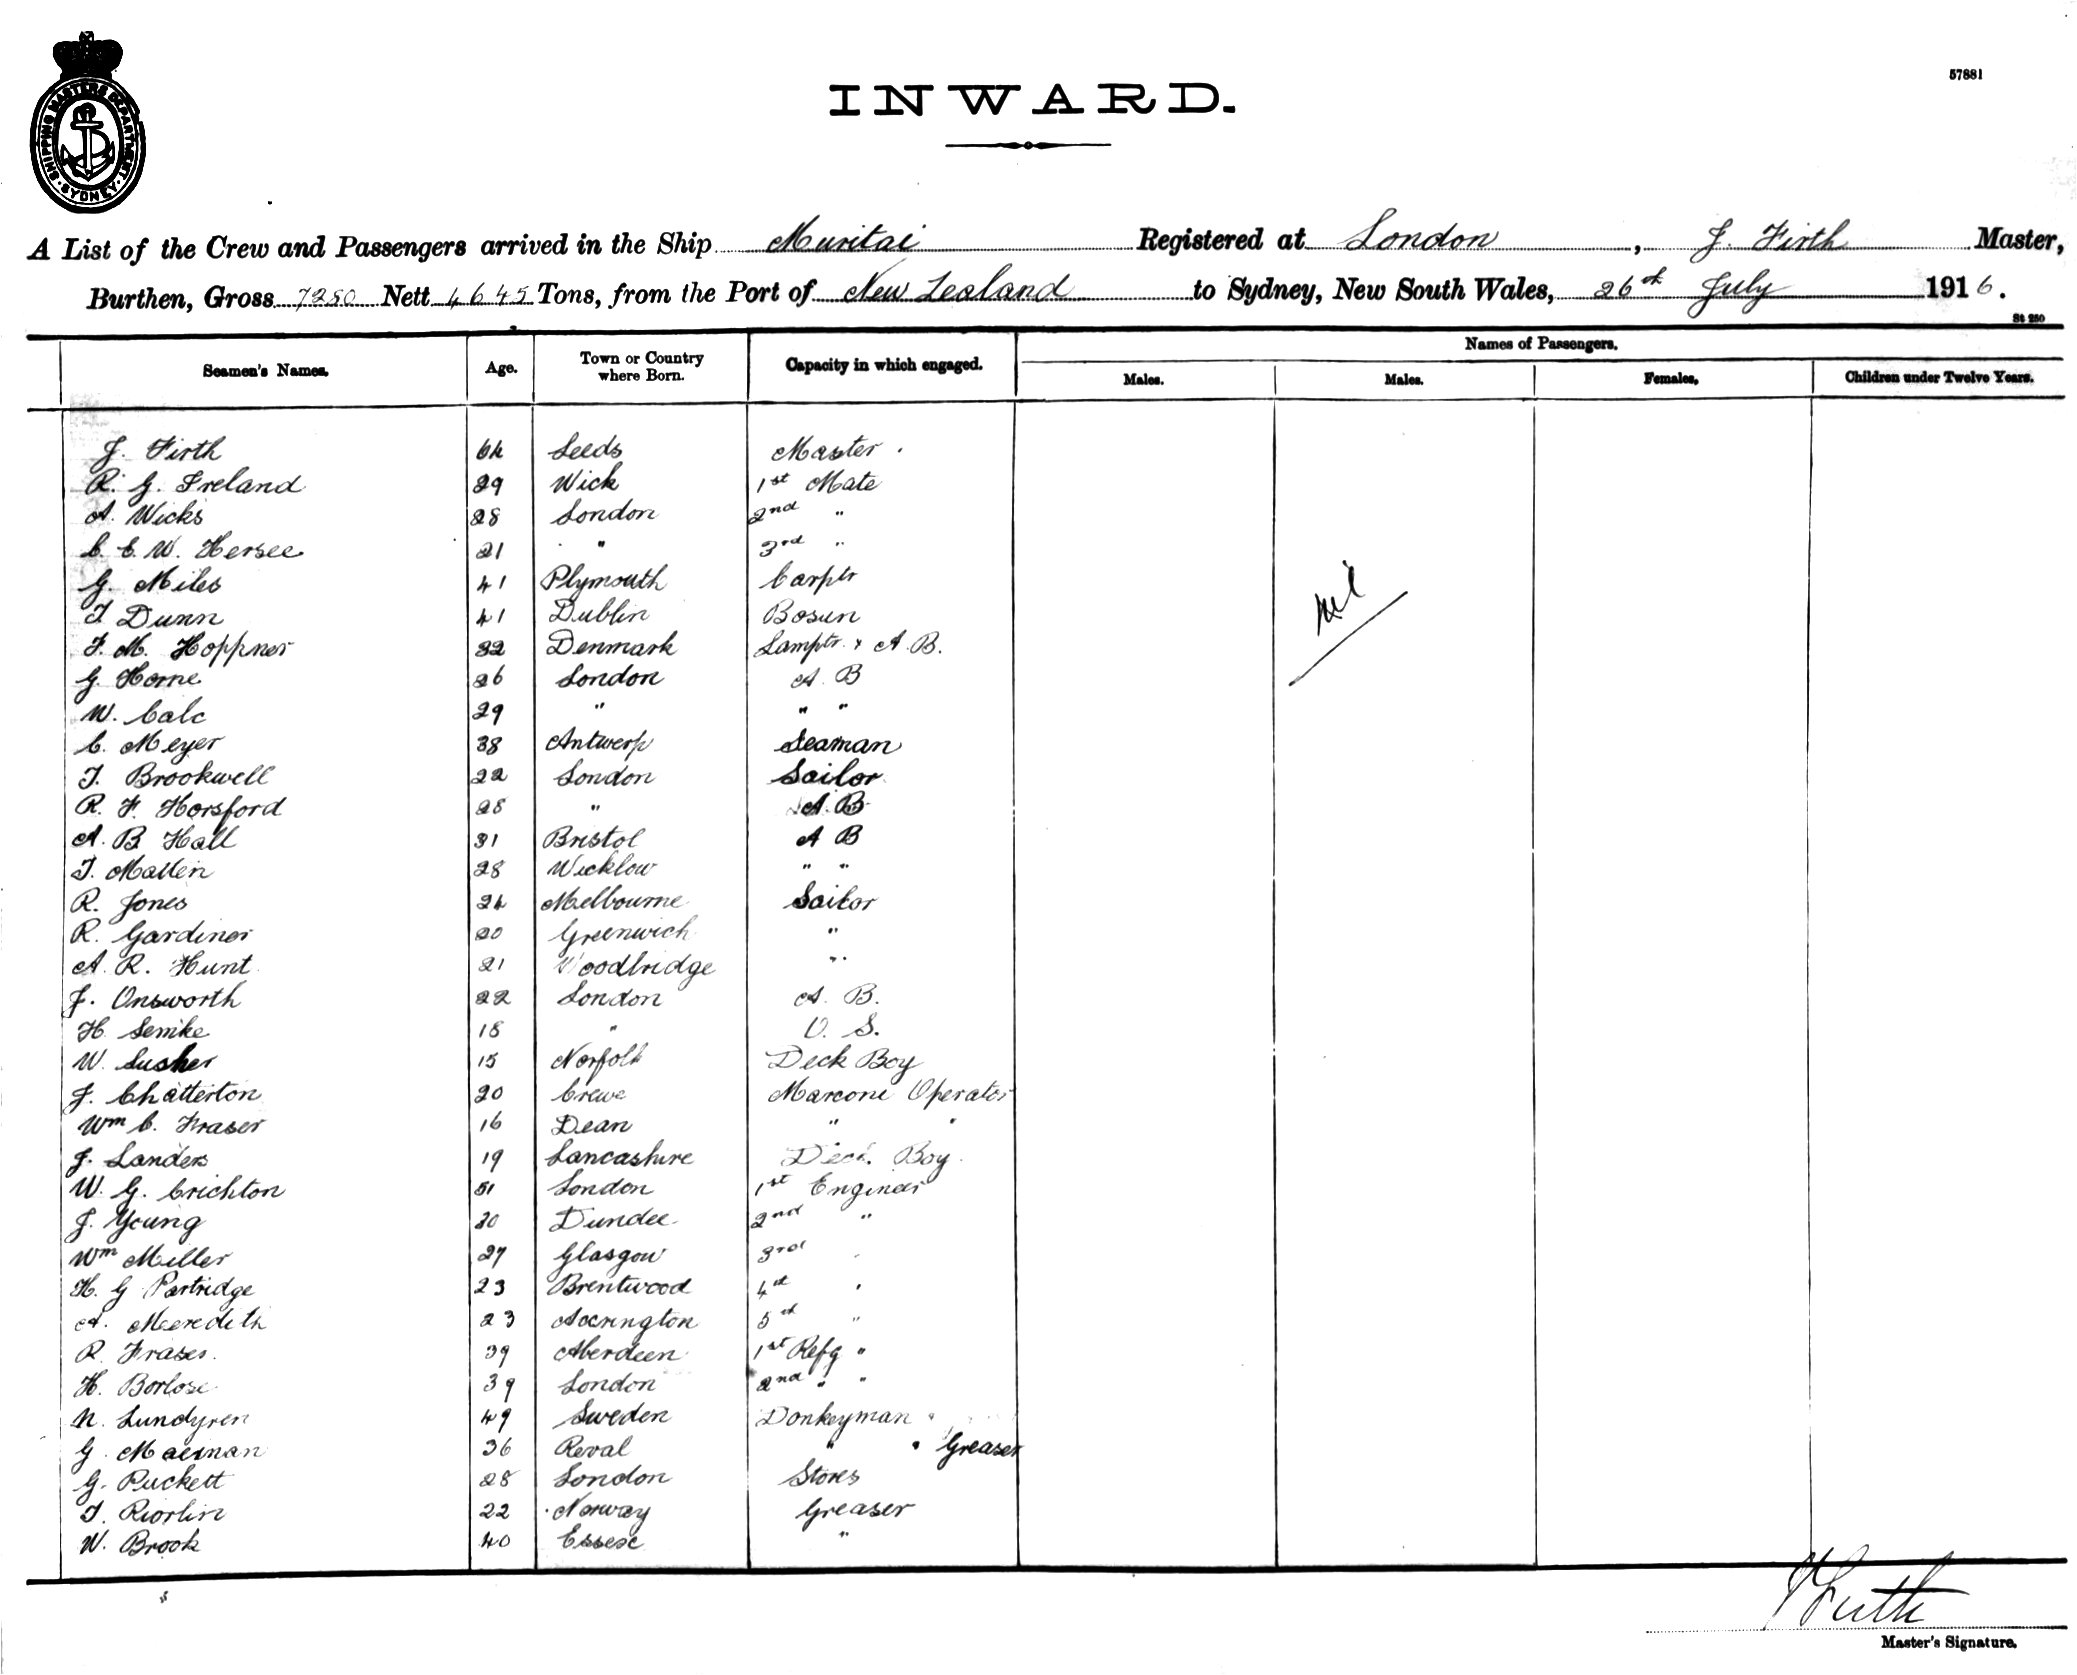 57881
SHIPPING MASTERS DEPARTMENT. SYDNEY.
INWARD.
A List of the Crew and Passengers arrived in the Ship Muritai Registered at London, J. Firth Master,
Burthen, Gross 7280 Nett 4645 Tons, from the Port of New Zealand to Sydney, New South Wales, 26th July 1916.
St 250
Seamen's Names. Age. Town or Country where Born. Capacity in which engaged. Names of Passengers.
Males. Males. Females. Children under Twelve Years.
J. Firth 64 Leeds Master.
R. G. Ireland 29 Wick 1st Mate
A. Wicks 28 London 2nd "
C. E. W. Hersee 21 " 3rd "
G. Miles 41 Plymouth Carptr
T Dunn 41 Dublin Bosun
F. M. Hoppner 32 Denmark Lamptr & A.B.
G. Horne 26 London A. B
W. Cale 29 " " "
C. Meyer 38 Antwerp Seaman
T. Brookwell 22 London Sailor
R. F. Horsford 28 " A. B
A. B Hall 31 Bristol A B
T. Matten 28 Wicklow " "
R. Jones 24 Melbourne Sailor
R. Gardiner 20 Greenwich "
A. R. Hunt 21 Woodbridge "
J. Onsworth 22 London A. B.
H. Semke 18 " O. S.
W. Susher 15 Norfolk Deck Boy
J. Chatterton 20 Crewe Marconi Operator
Wm C. Fraser 16 Dean " "
J. Landers 19 Lancashire Deck Boy
W. G. Crichton 51 London 1st Engineer
J. Young 30 Dundee 2nd "
Wm Miller 27 Glasgow 3rd "
H. G Partridge 23 Brentwood 4th "
A. Meeredith 23 Accrington 5th "
R. Fraser. 39 Aberdeen 1st Refg "
H. Borlose 39 London 2nd " "
N. Lundgren 49 Sweden Donkeyman
G. Maeman 36 Reval " " Greaser
G. Puckett 28 London Stores
T. Riorlin 22 Norway Greaser
W. Brook 40 Essex "
Nil
J Firth
Master's Signature.